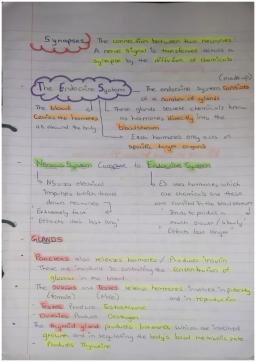 Synapses
The connection between two neurones
A nerve signal is transferred across a
synapse by the diffusion of chemicals
(made up)
The Endocrine System
The endocrine system consists
of a number of glands
The blood
Carries the hormones
all around the body
These glands secrete chemicals known
as hormones directly into the
bloodstream
Each hormone only acts on
specific target organs
Nervous System Compare to Endocrine System
NS uses electrical
impulses which travel
down neurones
Extremely fast
Effects don't last long
ES uses hormones which
are chemicals and these
are carried in the bloodstream
Effects last longer
GLANDS
Pancreas also releases hormones / Produces insulin
These are involved in controlling the concentration of
glucose in the blood
The Ovaries and Testes release hormones involved in puberty
(female) (Male) and in reproduction
Testes Produce Testosterone
Ovaries Produce Oestrogen
The thyroid gland produces hormones which are involved in
growth and in regulating the body's basal metabolic rate
Produces Thyroxine